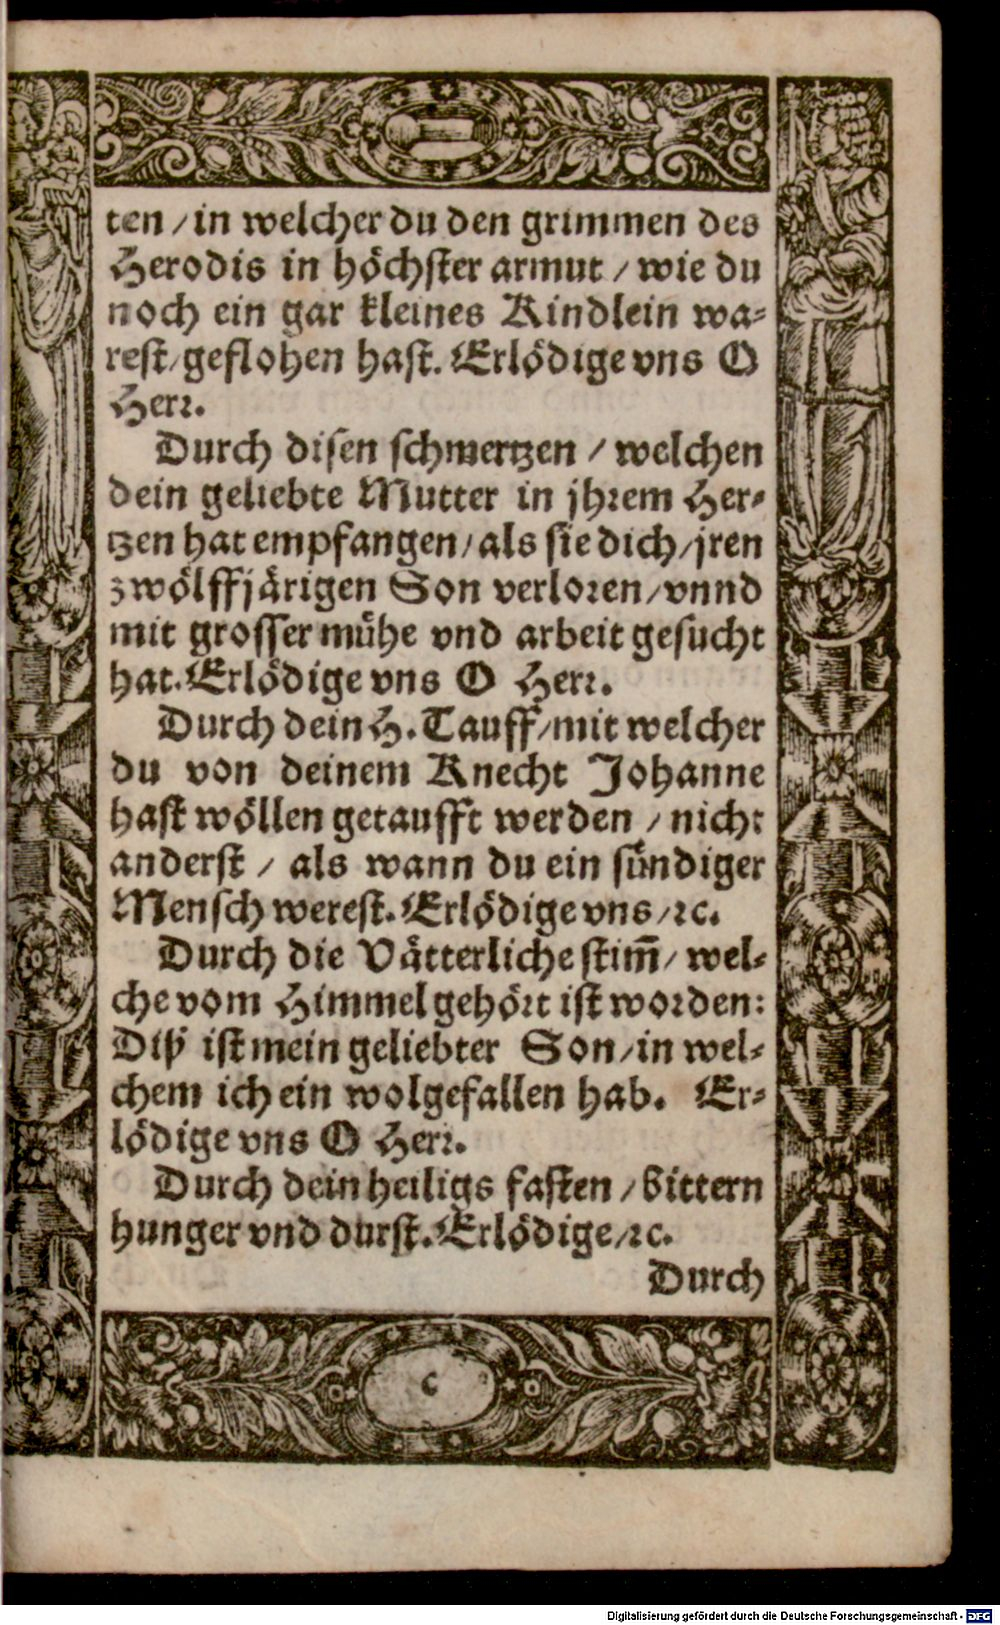 ten / in welcher du den grimmen des
Herodis in höchster armut / wie du
noch ein gar kleines Kindlein wa-
rest / geflohen hast. Erlödige vns O
Herr.
Durch disen schmertzen / welchen
dein geliebte Mutter in jhrem Her-
tzen hat empfangen / als sie dich / jren
zwölffjärigen Son verloren / vnnd
mit grosser mühe vnd arbeit gesucht
hat. Erlödige vns O Herr.
Durch dein H. Tauff / mit welcher
du von deinem Knecht Johanne
hast wöllen getaufft werden / nicht
anderst / als wann du ein sündiger
Mensch werest. Erlödige vns / ꝛc.
Durch die Vätterliche stim̄ / wel-
che vom Himmel gehört ist worden:
Diß ist mein geliebter Son / in wel-
chem ich ein wolgefallen hab. Er-
lödige vns O Herr.
Durch dein heiligs fasten / bittern
hunger vnd durst. Erlödige / ꝛc.
Durch
c
Digitalisierung gefördert durch die Deutsche Forschungsgemeinschaft - DFG